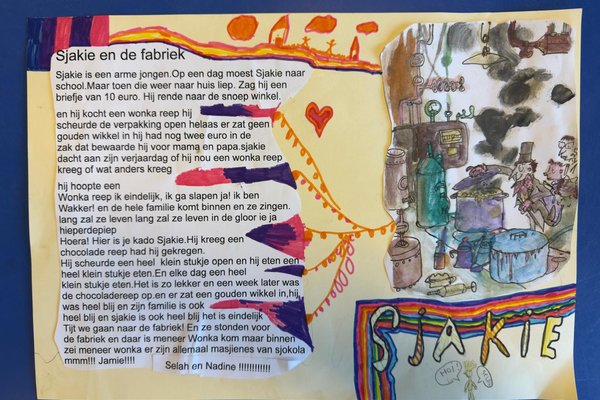 Sjakie en de fabriek
Sjakie is een arme jongen.Op een dag moest Sjakie naar
school.Maar toen die weer naar huis liep. Zag hij een
briefje van 10 euro. Hij rende naar de snoep winkel.
en hij kocht een wonka reep hij
scheurde de verpakking open helaas er zat geen
gouden wikkel in hij had nog twee euro in de
zak dat bewaarde hij voor mama en papa.sjakie
dacht aan zijn verjaardag of hij nou een wonka reep
kreeg of wat anders kreeg
hij hoopte een
Wonka reep ik eindelijk, ik ga slapen ja! ik ben
Wakker! en de hele familie komt binnen en ze zingen.
lang zal ze leven lang zal ze leven in de gloor ie ja
hieperdepiep
Hoera! Hier is je kado Sjakie.Hij kreeg een
chocolade reep had hij gekregen.
Hij scheurde een heel klein stukje open en hij eten een
heel klein stukje eten.En elke dag een heel
klein stukje eten.Het is zo lekker en een week later was
de chocoladereep op.en er zat een gouden wikkel in,hij
was heel blij en zijn familie is ook
heel blij en sjakie is ook heel blij het is eindelijk
Tijt we gaan naar de fabriek! En ze stonden voor
de fabriek en daar is meneer Wonka kom maar binnen
zei meneer wonka er zijn allemaal masjienes van sjokola
mmm!!! Jamie!!!!
Selah en Nadine !!!!!!!!!!!!
SJAKIE
Hoi!